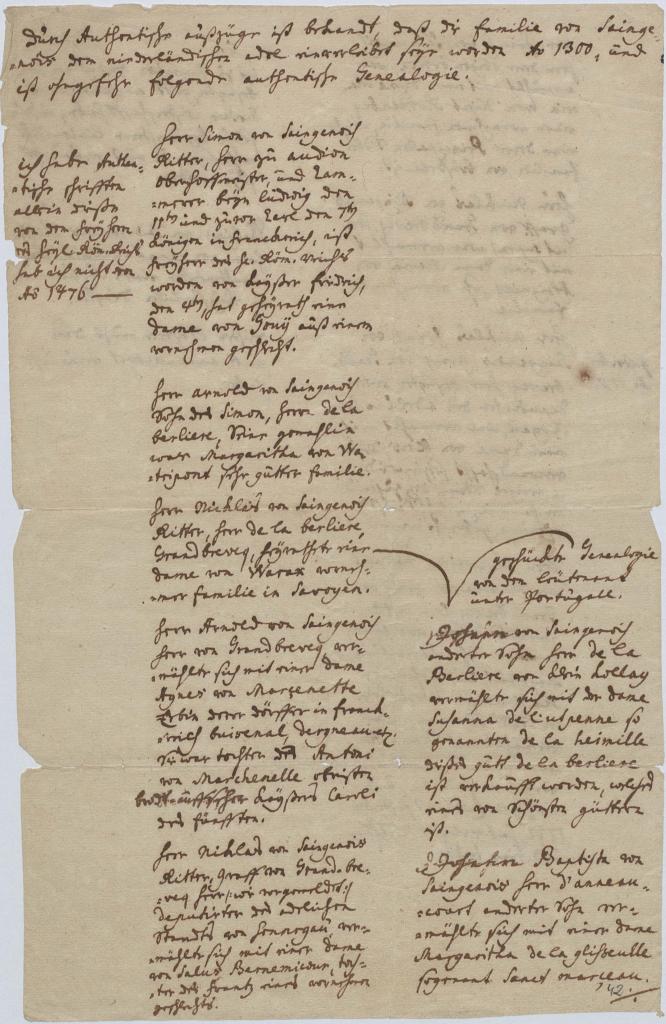 Durch Authentische außzüge ist bekandt, daß die familie von Sainge-
-nois dem niederländischen adel einverleibet seye worden Ao 1300, und
ist ohngefehr folgende authentische Genealogie.
ich habe Authen-
-tische schrifften
allein dießen
von dem freyherrn
des heyl. Röm. Reichs
hab ich nicht von
Ao 1476 —
Herr Simon von Saingenois
Ritter, herr zu audion
Oberhoffmeister, und Cam-
-merer beym Ludwig den
11ten und zuvor Carl den 7ten
Königen in franckreich, ist
freyherr des he. Röm. reichs
worden von Kayßer fridrich,
den 4ten, hat geheyrath eine
dame von Gouÿ auß einem
vornehmen geschlecht.
Herr arnold von Saingenois
Sohn des Simon, herrn de la
berliere, Seine gemahlin
ware Margaritha von Wa-
-tripont sehr gutter familie.
Herr Nicklas von Saingenois
Ritter, herr de la berliere
Grandbreveq, heyrathete eine
dame von Warax vorneh-
-mer familie in Savoyen.
Herr Arnold von Saingenois
herr von Grandbreveq, ver-
-mählte sich mit einer dame
Agnes von Marzenette
Erbin derer dörffer in franck-
-reich buivenal, dergneau etz.
Sie war tochter des Antoni
von Marchenelle obristen
Kayßers Caroli
des fünfften.
Herr Niklas von Saingenois
Ritter, Graff von Grand-bre-
-veq herr /: wie vorgemeldet :/
deputirter des adelichen
Standts von Hennegau, ver-
-mählte sich mit einer dame
von Salus Bernemicour, toch-
-ter des frantz eines vornehmen
geschlechts.
geschückte Genealogie
von dem leutenant
unter Portugall.
1 Johann von Saingenois
anderter Sohn herr de la
Berliere von
vermählte sich mit der dame
Susanna de so
genannten de la heimille
dießes gutt de la berliere
ist verkaufft worden, welches
eines von schönsten güttern
ist.
2 Johann Baptista von
Saingenois herr d'anneau-
-court anderter Sohn ver-
-mählte sich mit einer dame
Margaritha de la glisseulle
sogenant Sanct marceau.
42